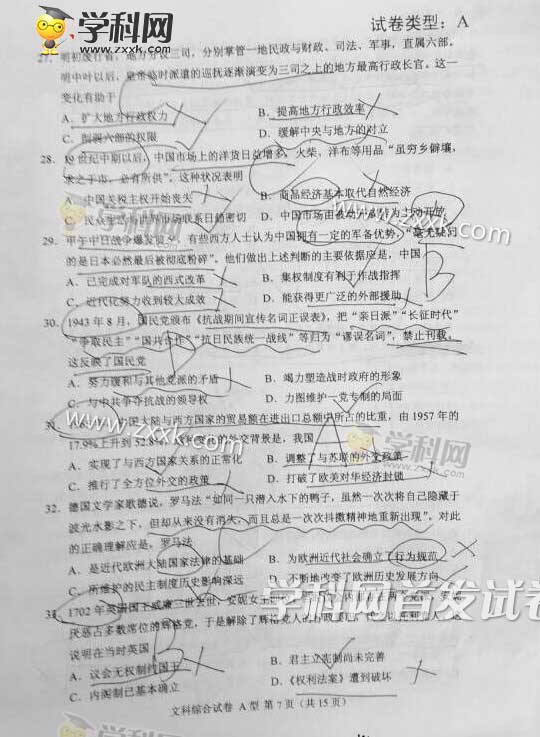 学科网 试卷类型：A
www.zxxk.com
27. 明初废行省，地方分设三司，分别掌管一地民政与财政、司法、军事，直属六部。
明中叶以后，皇帝临时派遣的巡抚逐渐演变为三司之上的地方最高行政长官。这一
变化有助于
A．扩大地方行政权力 B．提高地方行政效率
C．削弱六部的权限 D．缓解中央与地方的对立
28. 19世纪中期以后，中国市场上的洋货日益增多，火柴、洋布等用品“虽穷乡僻壤，
求之于市，必有所供”。这种状况表明
A．中国关税主权开始丧失 B．商品经济基本取代自然经济
C．民众生活与世界市场联系日趋密切 D．中国市场由被动开放转为主动开放
29. 甲午中日战争爆发后，有些西方人士认为中国拥有一定的军备优势，“毫无疑问
的是日本必然最后被彻底粉碎”。他们做出上述判断的主要依据应是，中国
A．已完成对军队的西式改革 B．集权制度有利于作战指挥
C．近代化努力收到较大成效 D．能获得更广泛的外部援助
30. 1943年8月，国民党颁布《抗战期间宣传名词正误表》，把“亲日派”“长征时代”
“争取民主”“国共合作”“抗日民族统一战线”等归为“谬误名词”，禁止刊载，
这反映了国民党
A．努力缓和与其他党派的矛盾 B．竭力塑造战时政府的形象
C．与中共争夺抗战的领导权 D．力图维护一党专制的局面
国大陆与西方国家的贸易额在进出口总额中所占的比重，由1957年的
17.9%上升到52.8% 的外交背景是，我国
A．实现了与西方国家关系的正常化 B．调整了与苏联的外交政策
C．推行了全方位外交的政策 D．打破了欧美对华经济封锁
32. 德国文学家歌德说，罗马法“如同一只潜入水下的鸭子，虽然一次次将自己隐藏于
波光水影之下，但却从来没有消失，而且总是一次次抖擞精神地重新出现”。对此
的正确理解应是，罗马法
A．是近代欧洲大陆国家法律的基础 B．为欧洲近代社会确立了行为规范
C．所维护的民主制度历史影响深远 D．不断地改变了欧洲历史发展方向
1702年英国国王威廉三世去世，安妮女王
厌恶占多数席位的辉格党，于是解除了辉格党人的行政
说明在当时英国
A．议会无权制约国王 B．君主立宪制尚未完善
C．内阁制已基本确立 D．《权利法案》遭到破坏
学科网首发试卷
文科综合试卷 A型 第7页（共15页）